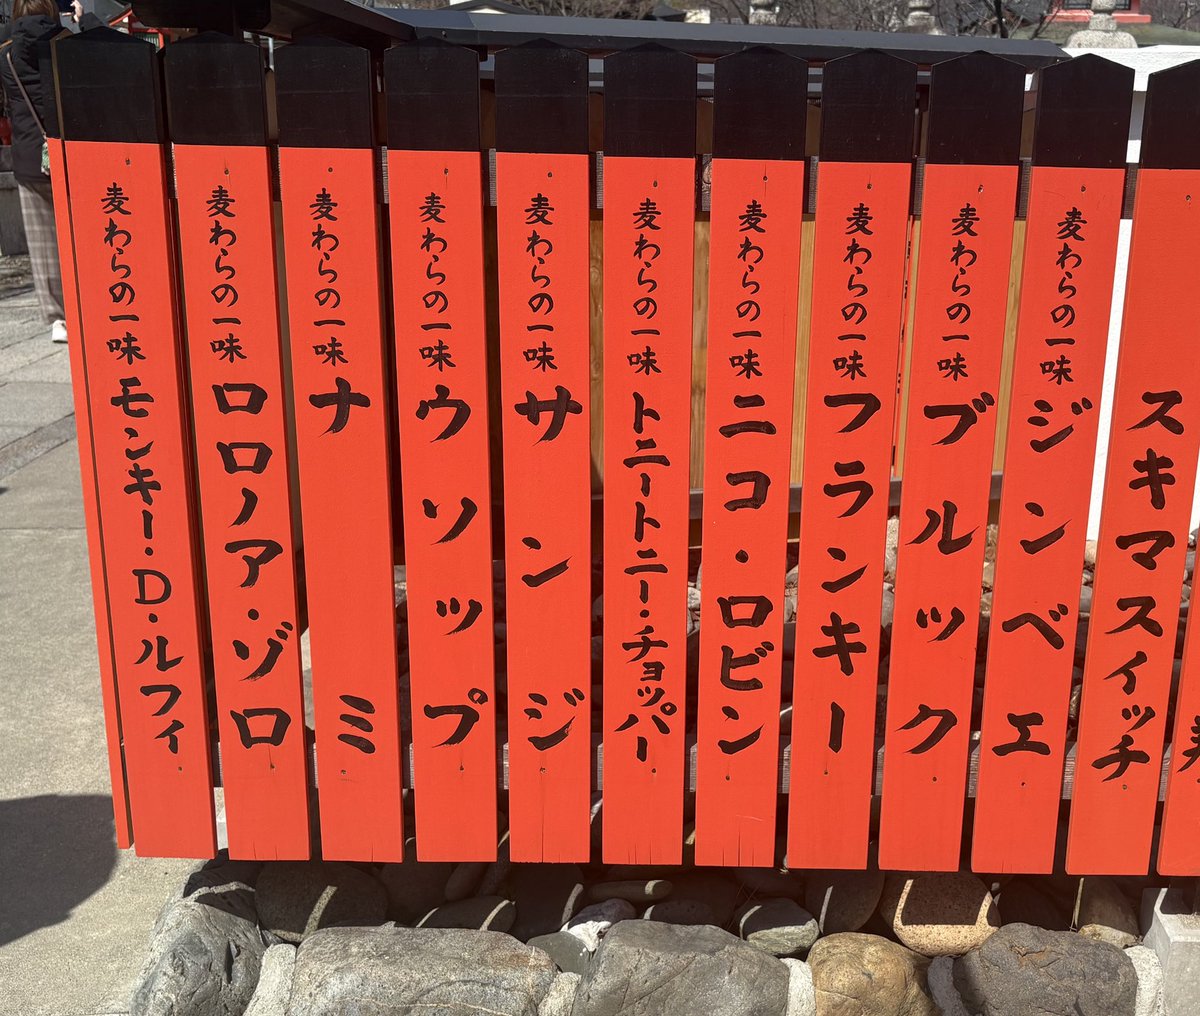 麦わらの一味 モンキー・D・ルフィ
麦わらの一味 ロロノア・ゾロ
麦わらの一味 ナミ
麦わらの一味 ウソップ
麦わらの一味 サンジ
麦わらの一味 トニートニー・チョッパー
麦わらの一味 ニコ・ロビン
麦わらの一味 フランキー
麦わらの一味 ブルック
麦わらの一味 ジンベエ
スキマスイッチ